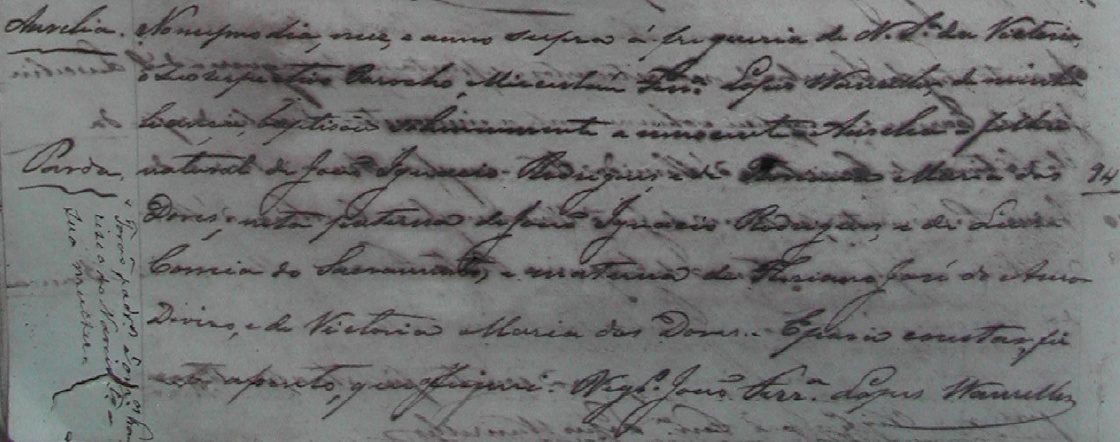 Aurelia. No mesmo dia, mez, e anno supra á freguezia de N. Sª da Victoria
o respectivo Parocho, Ferrª Lopes Wanzeller, de minha
licença, baptisou solemnemente a innocente Aurelia - filha
Parda, natural de João Ignacio Rodrigues, e de Maria das
94
Dores, neta paterna de João Ignacio Rodrigues, e de
Correia do Sacramento, e materna de Floriano José do Amor
Divino, e de Victoria Maria das Dores. E para constar, fiz
este assento, que assignei. Vigº João Ferrª Lopes Wanzeller
Forão padrinhos
sua mulher